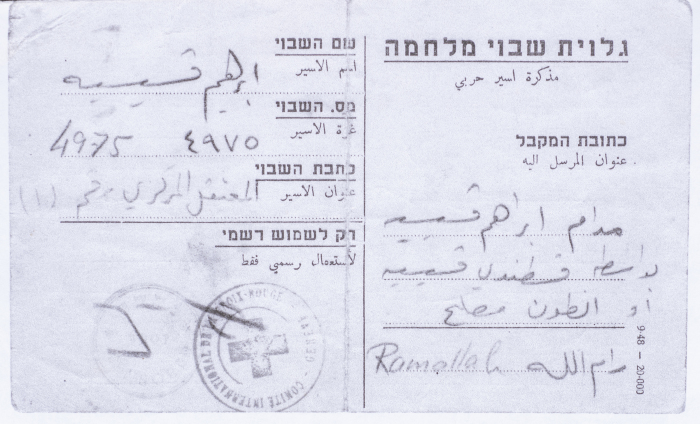 גלוית שבוי מלחמה
مذكرة اسير حربي
כתובת המקבל
عنوان المرسل اليه
مدام ابراهيم قسيسيه
بواسطة قسطندي قسيسيه
او انطون مصلح
رام الله Ramallah
9-48 — 20-000
שם השבוי
اسم الاسير
ابرهيم قسيسيه
מס. השבוי
نمرة الاسير
٤٩٧٥ 4975
כתבת השבוי
عنوان الاسير
المعتقل المركزي رقم (١)
רק לשמוש רשמי
لاستعمال رسمي فقط
COMITÉ INTERNATIONAL DE LA CROIX-ROUGE GENÈVE